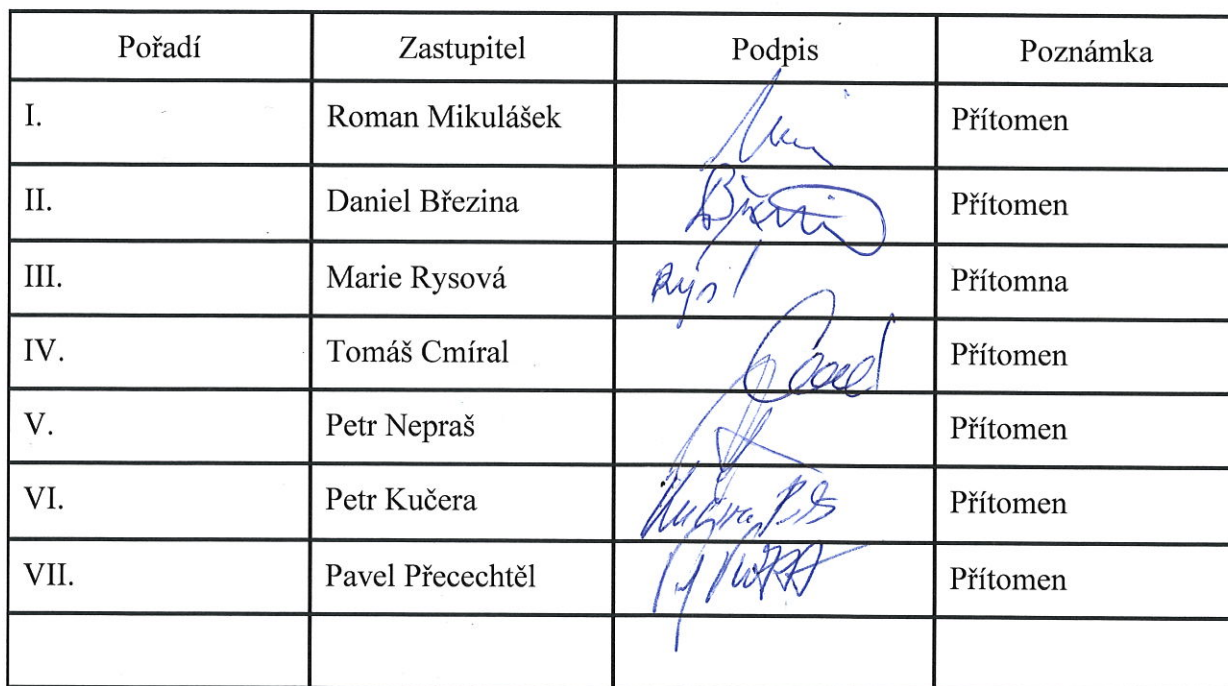 Pořadí Zastupitel Podpis Poznámka
I. Roman Mikulášek Přítomen
II. Daniel Březina Přítomen
III. Marie Rysová Přítomna
IV. Tomáš Cmíral Přítomen
V. Petr Nepraš Přítomen
VI. Petr Kučera Přítomen
VII. Pavel Přecechtěl Přítomen